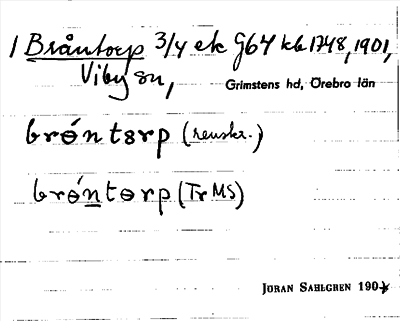 1 Bråntorp 3/4 ek G64 kb 1748, 1901,
Viby sn,
Grimstens hd, Örebro län
brɵ́ntɵrp (renskr.)
brɵ́ntɵrp (Tr MS)
JÖRAN SAHLGREN 190